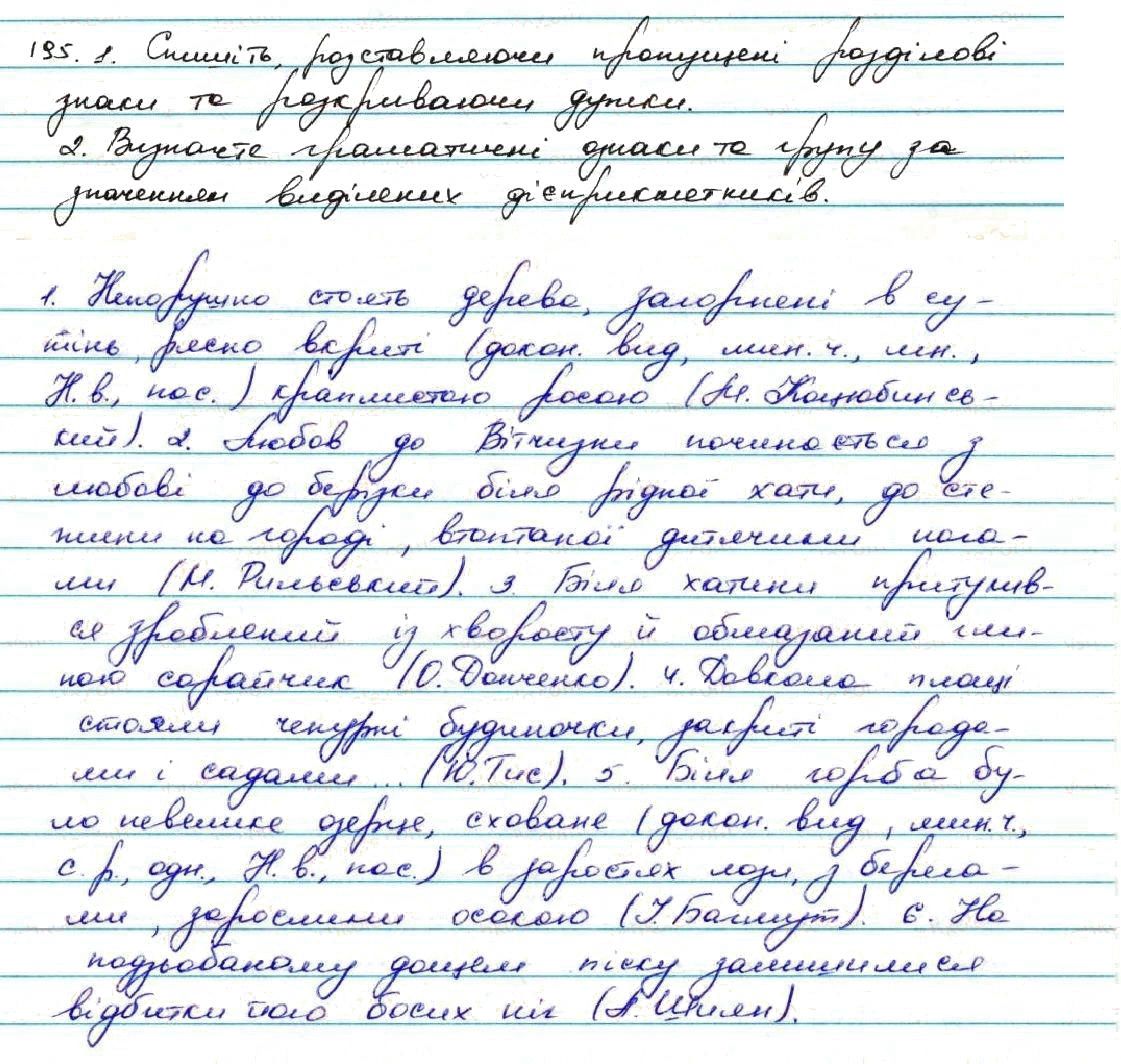 195. 1. Спишіть, розставляючи пропущені розділові
знаки та розкриваючи дужки.
2. Визначте граматичні ознаки та групу за
значенням виділених дієприкметників.
1. Непорушно стоять дерева, загорнені в су-
тінь, рясно вкриті (докон. вид, мин. ч., мн.,
Н. в., пас.) краплистою росою (М. Коцюбинсь-
кий). 2. Любов до Вітчизни починається з
любові до берізки біля рідної хати, до сте-
жини на городі, втоптаної дитячими нога-
ми (М. Рильський). 3. Біля хатини притулив-
ся зроблений із хворосту й обмазаний гли-
ною сарайчик (О. Донченко). 4. Довкола площі
стояли чепурні будиночки, закриті города-
ми і садами... (Ю. Тис). 5. Біля горба бу-
ло невелике озерце, сховане (докон. вид, мин. ч.,
с. р., одн., Н. в., пас.) в заростях лози, з берега-
ми, зарослими осокою (І. Багмут). 6. На
подзьобаному дощем піску залишилися
відбитки його босих ніг (А. Шиян).